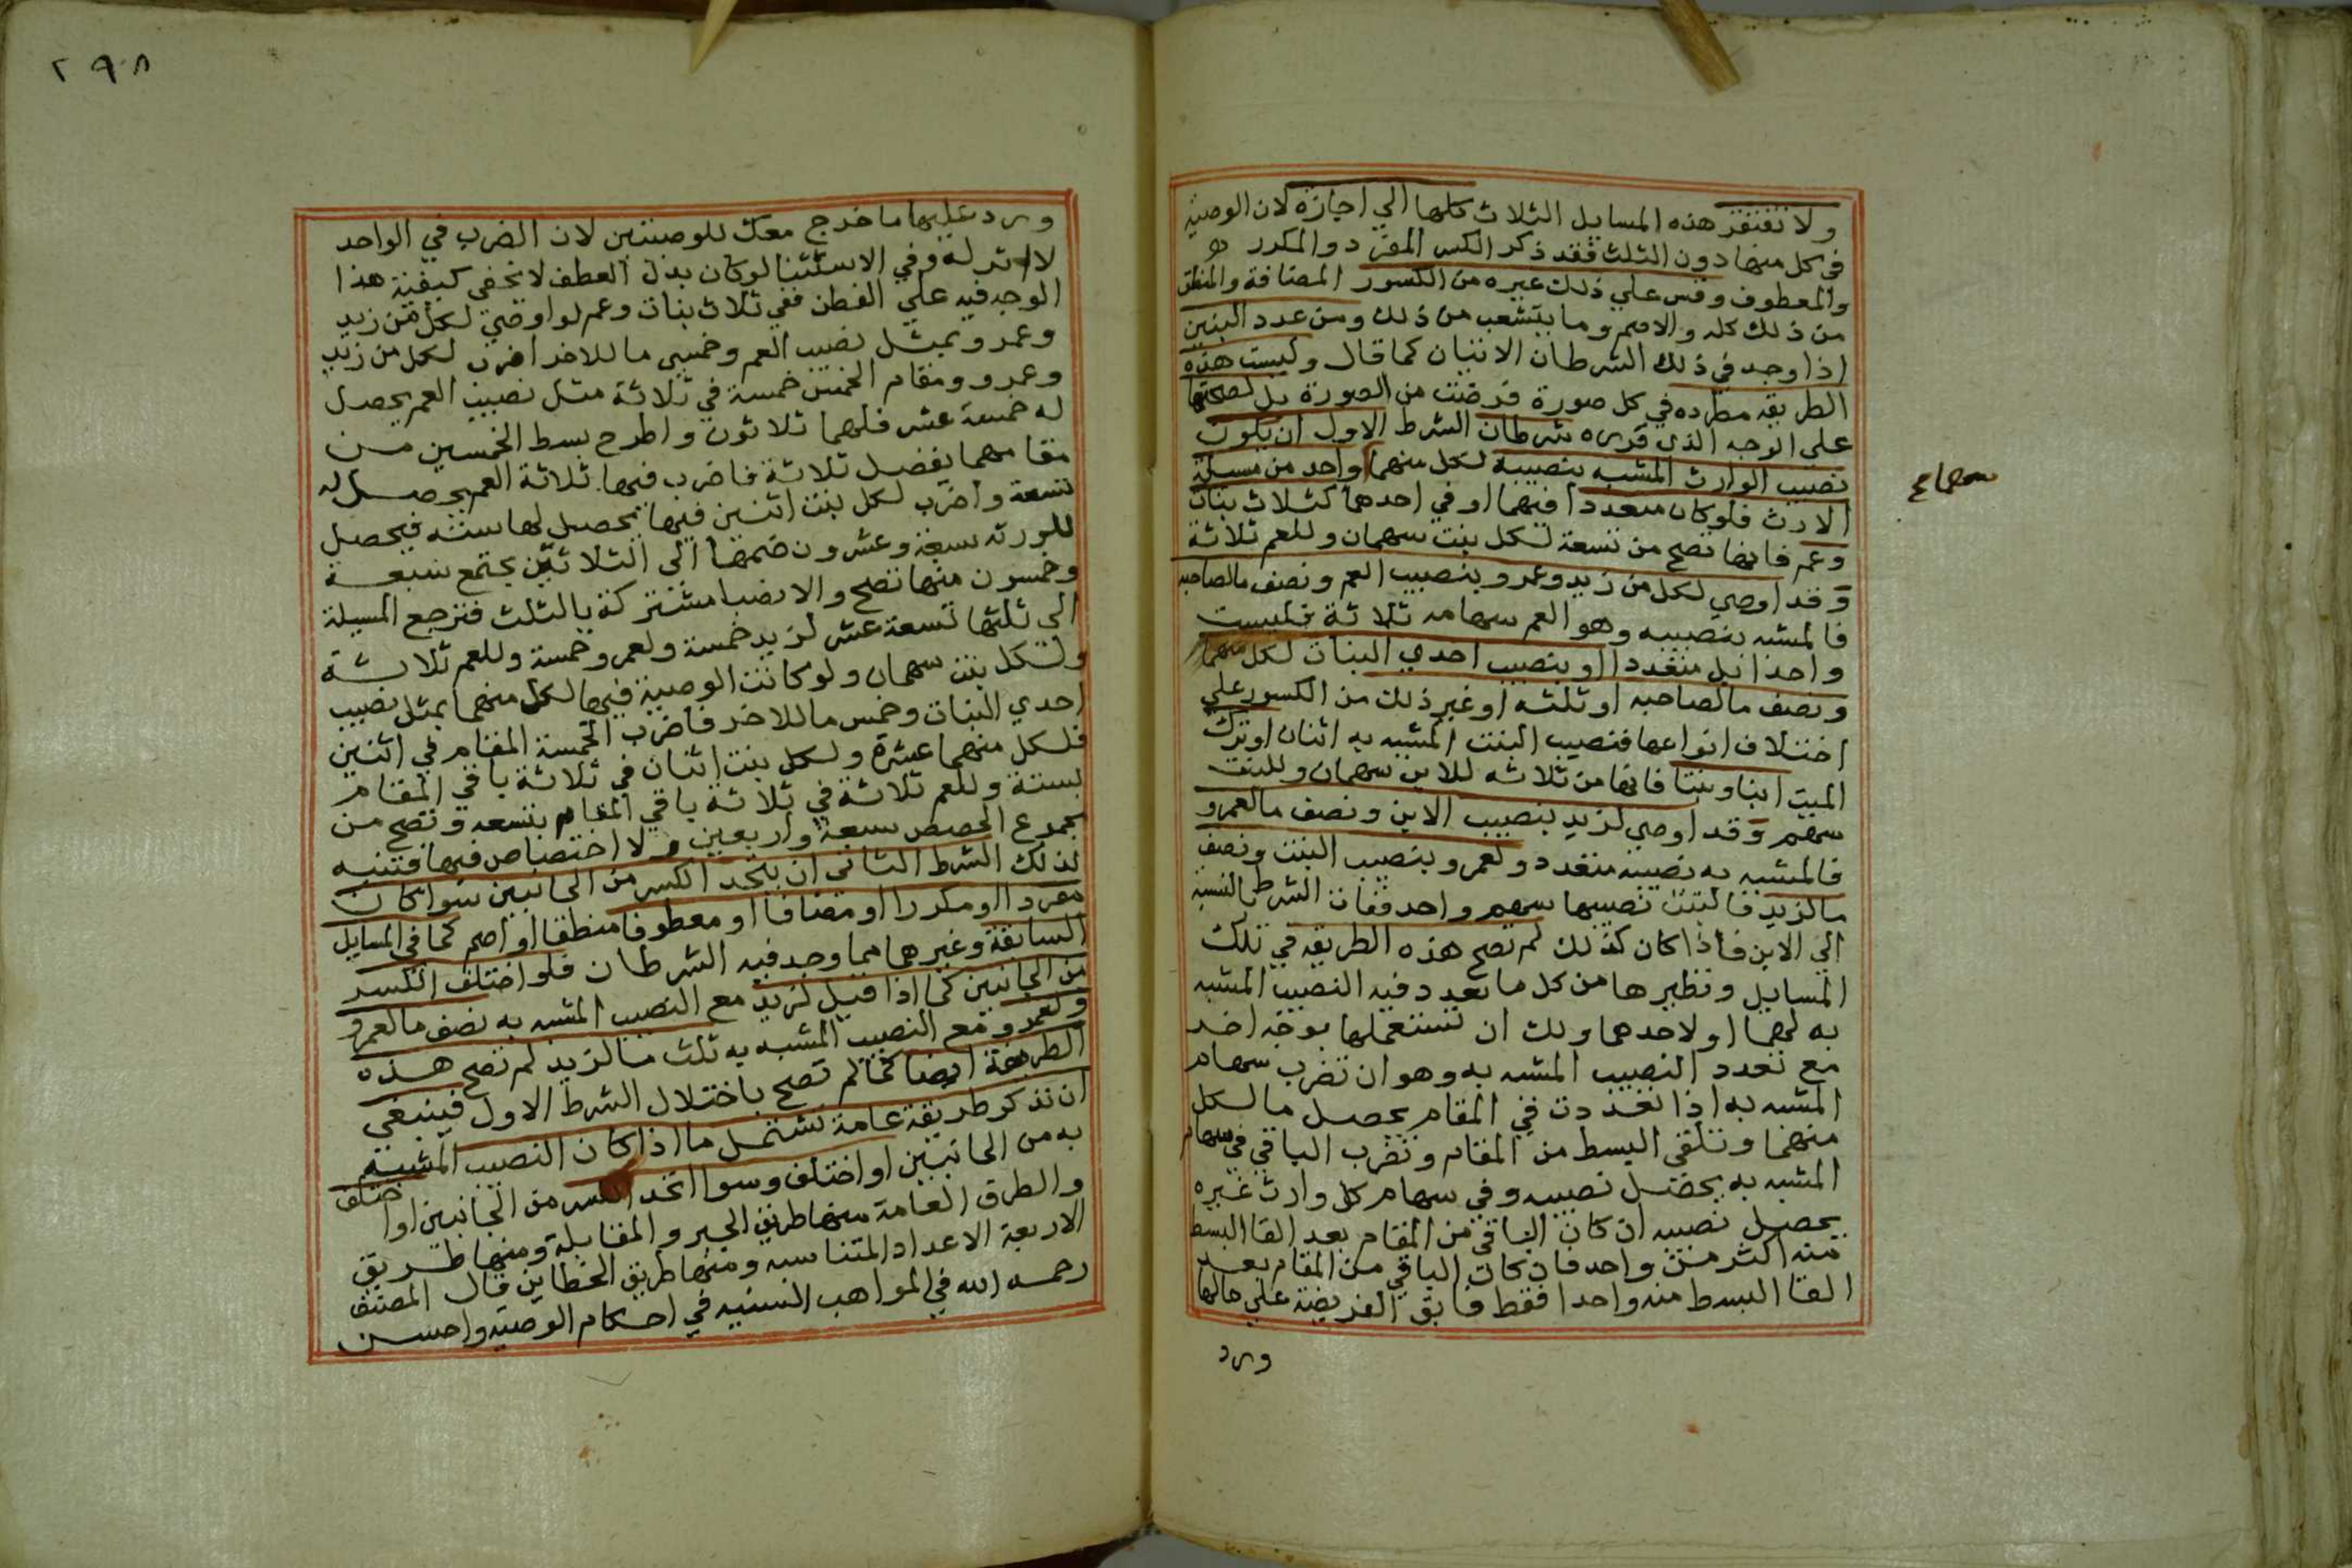 ولا تفتقر هذه المسايل الثلاث كلها الي اجازة لان الوصية
في كل منها دون الثلث فقد ذكر الكسر المفرد والمكرر
والمعطوف وقس علي ذلك غيره من الكسور المضافة والمنطق
من ذلك كله والاصم وما يتشعب من ذلك ومن عدد البنين
اذا وجد في ذلك الشرطان الاتيان كما قال وليست هذه
الطريقة مطرده في كل صورة فرضت من الصورة بل لصحتها
علي الوجه الذي قرره شرطان الشرط الاول ان يكون
نصيب الوارث المشبه بنصيبه لكل منهما واحد من مسيلة
الارث فلو كان متعددا فيهما او في احدهما كثلاث بنات
وعم فانها تصح من تسعة لكل بنت سهمان وللعم ثلاثة
وقد اوصي لكل من زيد وعمرو بنصيب العم ونصف ما لصاحبه
فالمشبه بنصيبه وهو العم سهامه ثلاثة فليست
واحدا بل متعددا او بنصيب احدي البنات لكل منهما
ونصف ما لصاحبه او ثلثه او غير ذلك من الكسور علي
اختلاف انواعها فنصيب البنت المشبه به اثنان او ترك
الميت ابنا وبنتا فانها من ثلاثه للابن سهمان وللبنت
سهم وقد اوصي لزيد بنصيب الابن ونصف ما لعمرو
فالمشبه به نصيبه متعدد ولعمرو بنصيب البنت ونصف
ما لزيد فالبنت نصيبها سهم واحد ففات الشرط بالنسبة
الي الابن فاذا كان كذلك لم تصح هذه الطريقه في تلك
المسايل ونظيرها من كل ما تعدد فيه النصيب المشبه
به لهما او لاحدهما ولك ان تستعملها بوجه اخر
مع تعدد النصيب المشبه به وهو ان تضرب سهام
المشبه به اذا تعددت في المقام يحصل ما لكل
منهما وتلقي البسط من المقام وتضرب الباقي في سهام
المشبه به يحصل نصيبه وفي سهام كل وارث غيره
يحصل نصيبه ان كان الباقي من المقام بعد القا البسط
منه اكثر من واحد فان كان الباقي من المقام بعد
القا البسط منه واحدا فقط فابق الفريضة علي حالها
ورد
٢٩٨
ورد عليها ما خرج معك للوصيتين لان الضرب في الواحد
لا اثر له وفي الاستثنا لو كان بدل العطف لا تخفي كيفية هذا
الوجه فيه علي الفطن ففي ثلاث بنات وعم لو اوصي لكل من زيد
وعمرو بمثل نصيب العم وخمسي ما للاخر اضرب لكل من زيد
وعمرو ومقام الخمسين خمسة في ثلاثة مثل نصيب العم يحصل
له خمسة عشر فلهما ثلاثون واطرح بسط الخمسين من
مقامهما يفضل ثلاثة فاضرب فيها ثلاثة العم يحصل له
تسعة واضرب لكل بنت اثنين فيها يحصل لها ستة فيحصل
للورثه سبعة وعشرون ضمها الي الثلاثين يجتمع سبعة
وخمسون منها تصح والانصبا مشتركة بالثلث فترجع المسيلة
الي ثلثها تسعة عشر لزيد خمسة ولعمرو خمسة وللعم ثلاثة
ولكل بنت سهمان ولو كانت الوصية فيها لكل منهما بمثل نصيب
احدي البنات وخمس ما للاخر فاضرب الخمسة المقام في اثنين
فلكل منهما عشرة ولكل بنت اثنان في ثلاثة باقي المقام
بستة وللعم ثلاثة في ثلاثة باقي المقام بتسعه وتصح من
مجموع الحصص سبعة واربعين ولا اختصاص فيها فتنبه
لذلك الشرط الثاني ان يتحد الكسر من الجانبين سوا كان
مفردا او مكررا او مضافا او معطوفا منطقا او اصم كما في المسايل
السابقة وغيرهما مما وجد فيه الشرطان فلو اختلف الكسر
من الجانبين كما اذا قيل لزيد مع النصيب المشبه به نصف ما لعمرو
ولعمرو مع النصيب المشبه به ثلث ما لزيد لم تصح هذه
الطريقة ايضا كما لم تصح باختلال الشرط الاول فينبغي
ان نذكر طريقة عامة تشتمل ما اذا كان النصيب المشبه
به من الجانبين او اختلف وسوا اتحد الكسر من الجانبين او اختلف
والطرق العامة منها طريق الجبر والمقابلة ومنها طريق
الاربعة الاعداد المتناسبه ومنها طريق الخطاين قال المصنف
رحمه الله في المواهب السنيه في احكام الوصيه واحسن